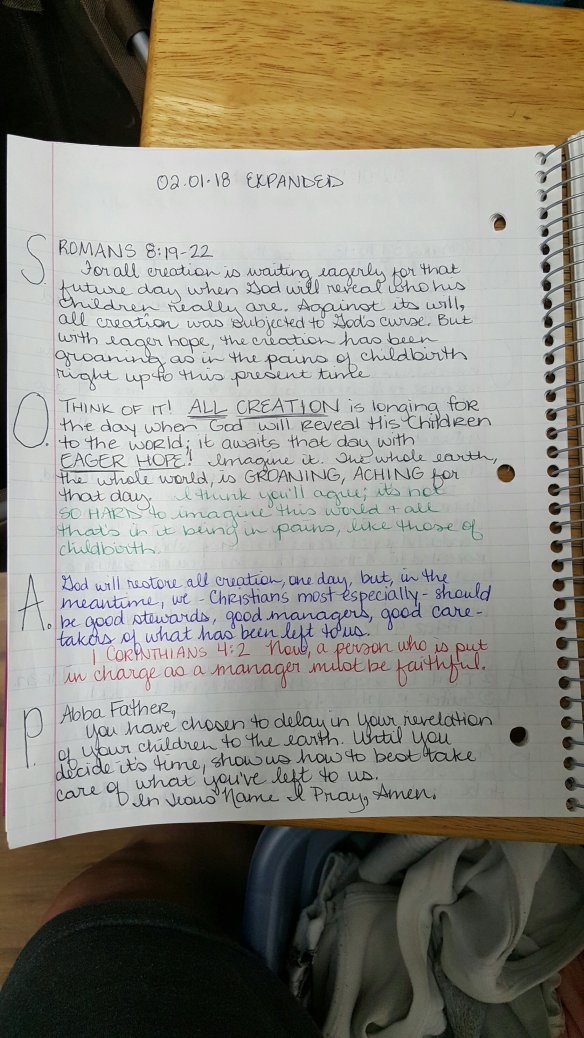 02.01.18 EXPANDED
S ROMANS 8:19-22
For all creation is waiting eagerly for that
future day when God will reveal who his
children really are. Against its will,
all creation was subjected to God's curse. But
with eager hope, the creation has been
groaning as in the pains of childbirth
right up to this present time
O. THINK OF IT! ALL CREATION is longing for
the day when God will Reveal His Children
to the world; it awaits that day with
EAGER HOPE! Imagine it. The whole earth,
the whole world, is GROANING, ACHING for
that day. I think you'll ague; it's not
SO HARD to imagine this world + all
that's in it being in pains, like those of
childbirth.
A. God will restore all creation, one day, but, in the
meantime, we - Christians most especially - should
be good stewards, good managers, good care-
takers of what has been left to us.
1 CORINTHIANS 4:2 Now, a person who is put
in charge as a manager must be faithful.
P. Abba Father,
You have chosen to delay in Your revelation
of your children to the earth. Until you
decide it's time, show us how to best take
care of what you've left to us.
In Jesus' Name I Pray, Amen.